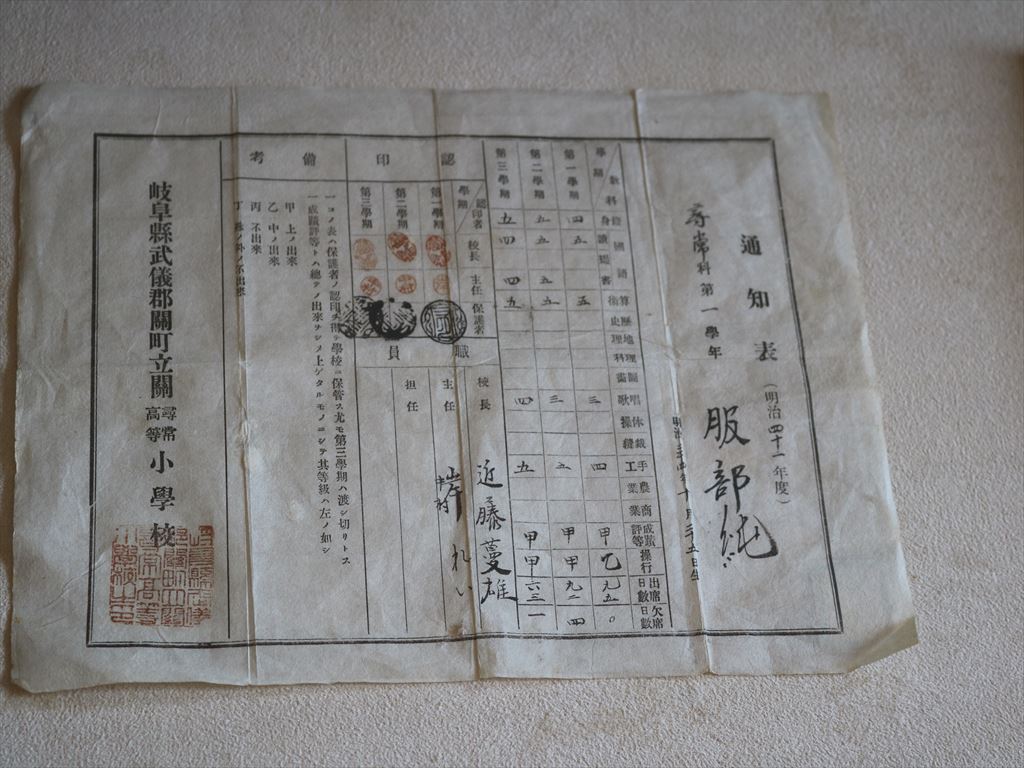 通知表
(明治四十一年度)
尋常科第一學年
服部純
學期
教科
修身
國語
讀
綴
書
算術
歷史
地理
理科
圖畫
唱歌
体操
裁縫
手工
農業
商業
成蹟評等
操行
出席日數
欠席日數
第一學期
四
五
五
三
四
甲
乙
九五
〇
第二學期
五
五
五
五
三
五
甲
甲
九二
四
第三學期
五
四
四
五
四
五
甲
甲
六三
一
認印
學期
認印者
校長
主任
保護者
第一學期
第二學期
第三學期
職員
校長
近藤蔓雄
主任
れい
担任
備考
一 コノ表ハ保護者ノ認印ヲ得テ學校ニ保管ス尤モ第三學期ハ渡シ切リトス
一 成蹟評等トハ總テノ出來ヲシメ上ゲタルモノニシテ其等級ハ左ノ如シ
甲 上ノ出來
乙 中ノ出來
丙 不出來
丁 殊ノ外ノ不出來
岐阜縣武儀郡關町立關尋常高等小學校